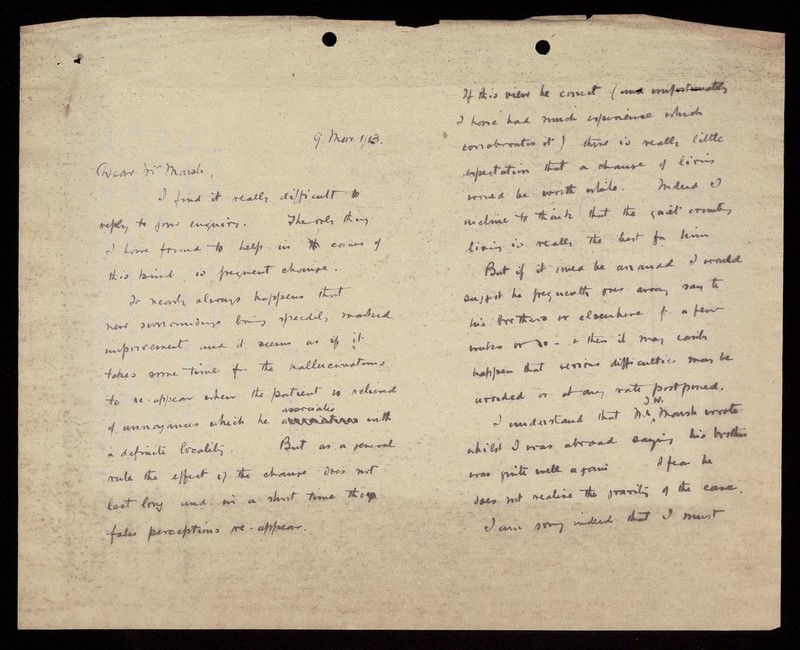 9 Mar. 1913.
Dear Mr Marsh,
I find it really difficult to
reply to your enquiry. The only thing
I have found to help in cases of
this kind is frequent change.
It nearly always happens that
new surroundings bring speedily marked
improvement and it seems as if it
takes some time for the hallucinations
to re-appear when the patient is relieved
of annoyances which he associates with
a definite locality. But as a general
rule the effect of the change does not
last long and in a short time the
false perceptions re-appear.
If this view be correct (and unfortunately
I have had much experience which
corroborates it) there is really little
expectation that a change of living
would be worth while. Indeed I
incline to think that the quiet country
living is really the best for him
But if it could be arranged I would
suggest he frequently goes away say to
his brothers or elsewhere for a few
weeks or so - & then it may easily
happen that serious difficulties may be
avoided or at any rate postponed.
I understand that Mr J.W. Marsh wrote
whilst I was abroad saying his brother
was quite well again I fear he
does not realise the gravity of the case.
I am sorry indeed that I must